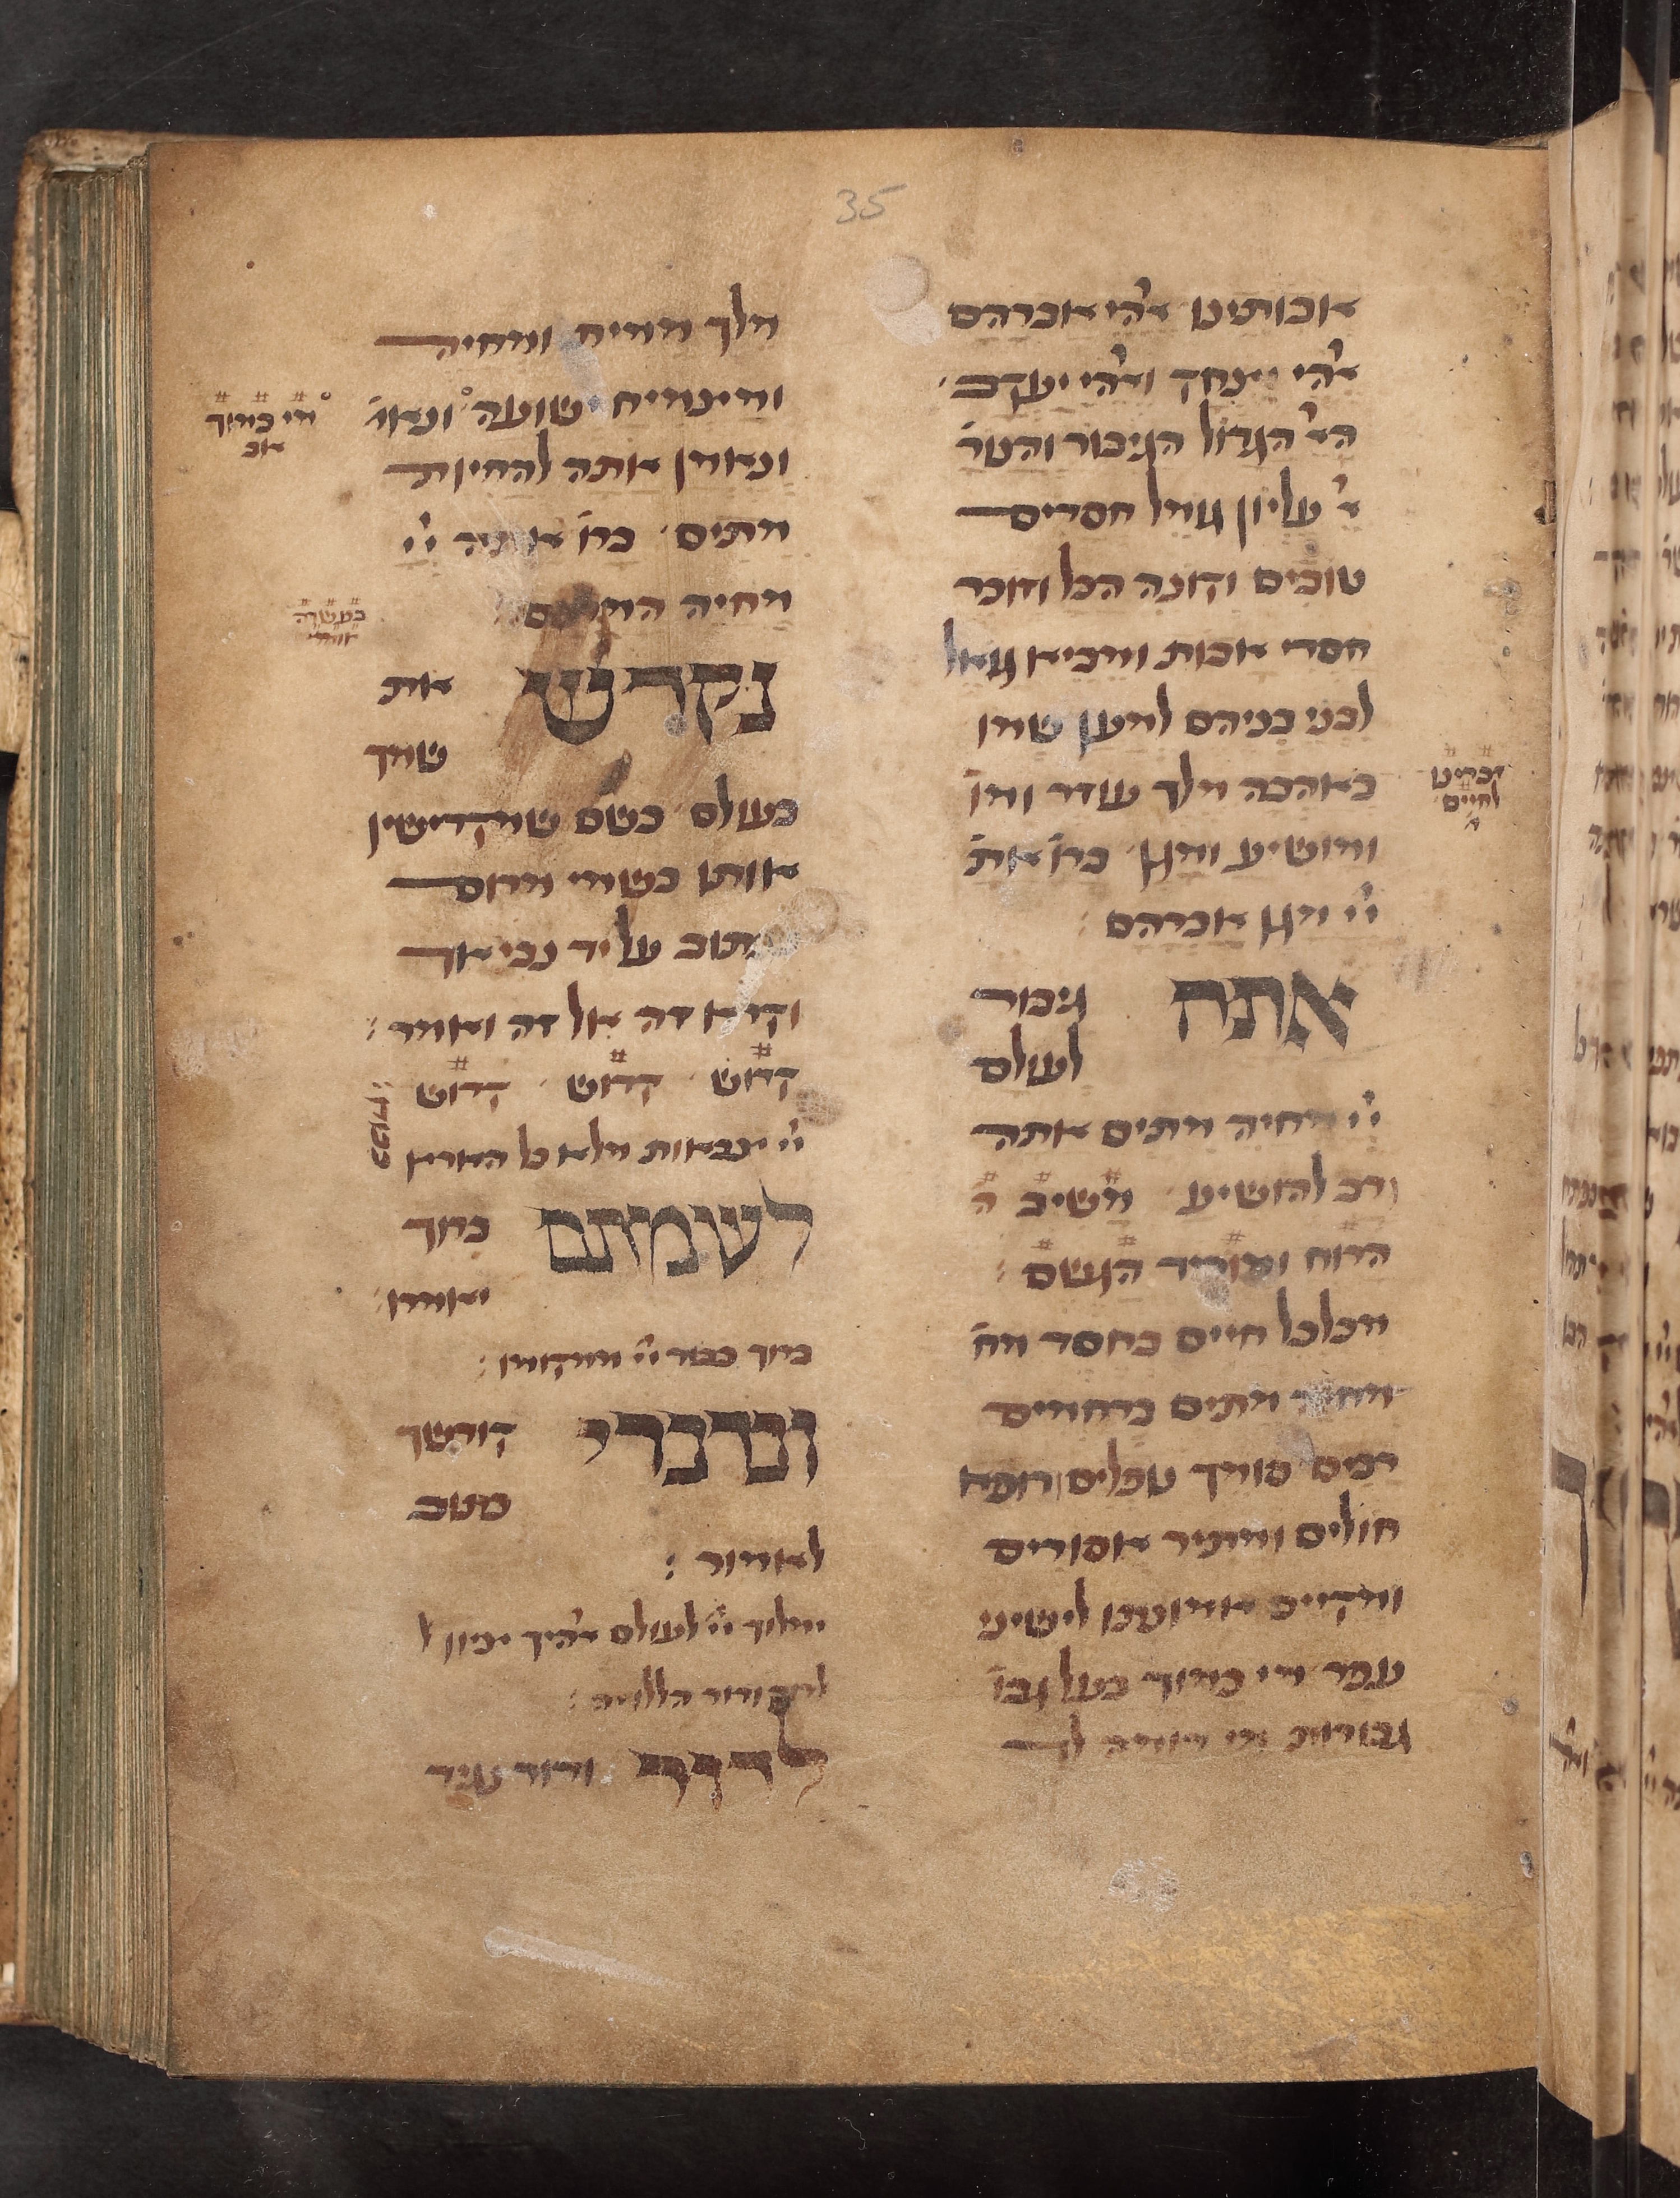 35
אבותינו אהי אברהם
אהי יצחק ואהי יעקב
הא הגדול הגיבור והנור
א עליון גומל חסדים
טובים וקונה הכל וזוכר
חסדי אבות ומביא גואל
לבני בניהם למען שמו
באהבה מלך עוזר ומו
ומושיע ומגן ברו את
יי מגן אברהם :
אתה גיבור
לעולם
יי מחיה מתים אתה
ורב להושיע משיב ה
הרוח ומוריד הגשם :
מכלכל חיים בחסד מח
מחיה מתים ברחמים
רבים סומך נופלים רופא
חולים ומתיר אסורים
ומקיים אמונתו לישיני
עפר מי כמוך בעל גבו
גבורות ומי דומה לך
זכרינו
לחיים
מלך ממית ומחיה
ומצמיח ישועה ונאו
ונאמן אתה להחיות
מתים ברו אתה יי
מחיה המתים
נקדש את
שמך
בעולם כשם שמקדישין
אותו בשמי מרום
ככתוב על יד נביאך
וקרא זה אל זה ואמר :
קדוש קדוש קדוש
יי צבאות מלא כל הארץ
כבודו :
לעומתם ברוך
יאמרו
ברוך כבוד יי ממקומו :
ובדברי קודשך
כתוב
לאמור :
ימלוך יי לעולם אהיך ציון ל
לדור ודור הללויה :
לדור ודור נגיד
מי כמוך
אב
בעשרה